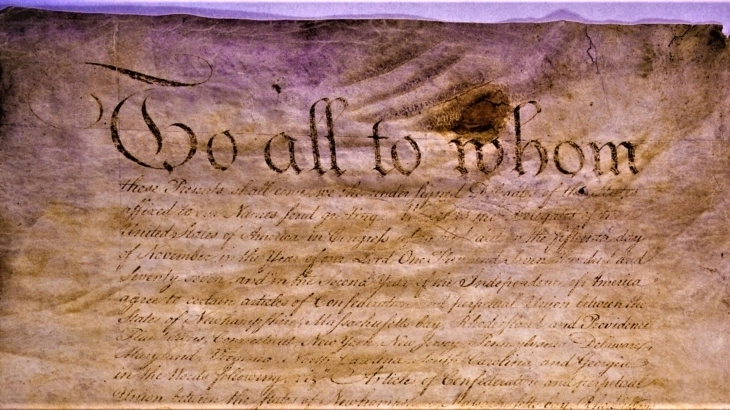 To all whom
these Presents shall come, we the under signed Delegates of the States
affixed to our Names send greeting. Whereas the Delegates of the
United States of America in Congress assembled did on the fifteenth day
of November in the Year of our Lord One Thousand Seven Hundred and
Seventy seven, and in the Second Year of the Independence of America
agree to certain articles of Confederation and perpetual Union between the
States of Newhampshire, Massachusetts-bay, Rhodeisland and Providence
Plantations, Connecticut, New York, New Jersey, Pennsylvania, Delaware,
Maryland, Virginia, North-Carolina, South-Carolina, and Georgia
in the Words following, viz. "Articles of Confederation and perpetual
Union between the States of Newhampshire, Massachusetts-bay, Rhodeisland